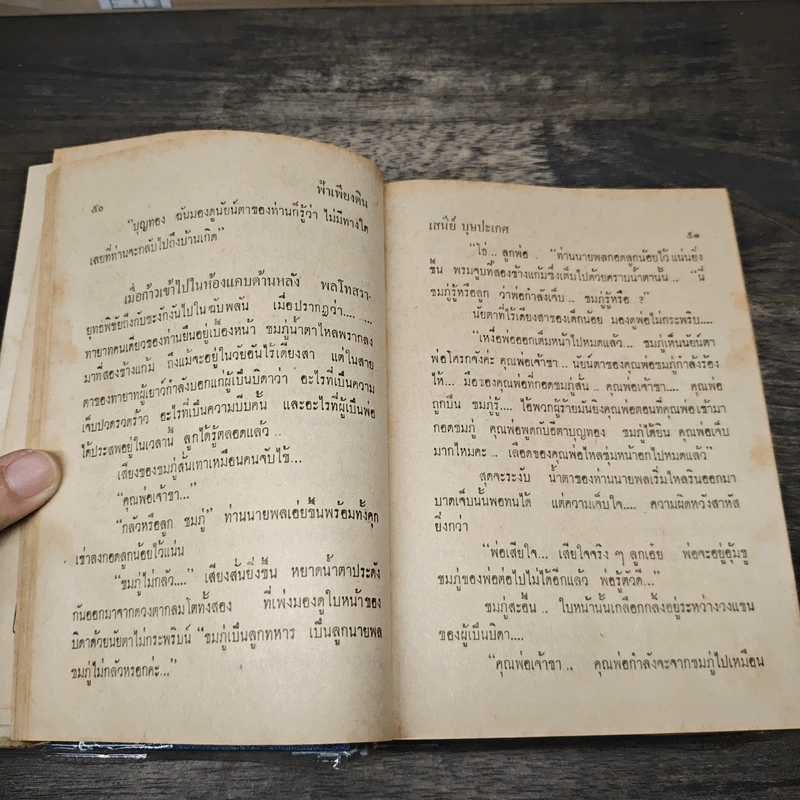 ๕๐
ฟ้าเพียงดิน
"บุญทอง ฉันมองดูนัยน์ตาของท่านก็รู้ว่า ไม่มีทางใด
เลยที่ท่านจะกลับไปถึงบ้านเกิด"
เมื่อก้าวเข้าไปในห้องแคบด้านหลัง พลโทสรา-
ยุทธพิชัยถึงกับชะงักงันไปในฉับพลัน เมื่อปรากฏว่า.... ....
ทายาทคนเดียวของท่านยืนอยู่เบื้องหน้า ชมภู่น้ำตาไหลพรากลง
มาที่สองข้างแก้ม ถึงแม้จะอยู่ในวัยอันไร้เดียงสา แต่ในสาย
ตาของทายาทผู้เยาว์กำลังบอกแก่ผู้เป็นบิดาว่า อะไรที่เป็นความ
เจ็บปวดรวดร้าว อะไรที่เป็นความบีบคั้น และอะไรที่ผู้เป็นพ่อ
ได้ประสพอยู่ในเวลานี้ ลูกได้รู้ตลอดแล้ว ..
เสียงของชมภู่สั่นเทาเหมือนคนจับไข้...
"คุณพ่อเจ้าขา..."
"กลัวหรือลูก ชมภู่" ท่านนายพลเอ่ยขึ้นพร้อมทั้งคุก
เข่าลงกอดลูกน้อยไว้แน่น
"ชมภู่ไม่กลัว...." เสียงสั่นยิ่งขึ้น หยาดน้ำตาประดัง
กันออกมาจากดวงตากลมโตทั้งสอง ที่เพ่งมองดูใบหน้าของ
บิดาด้วยนัยตาไม่กระพริบนี้ "ชมภู่เป็นลูกทหาร เป็นลูกนายพล
ชมภู่ไม่กลัวหรอกค่ะ..."
เสนีย์ บุษปะเกศ
๕๑
"โธ่ .. ลูกพ่อ .. "ท่านนายพลกอดลูกน้อยไว้ แน่นยิ่ง
ขึ้น พรมจูบที่สองข้างแก้มซึ่งเต็มไปด้วยคราบน้ำตานั้น .. "นี่
ชมภู่รู้หรือลูก ว่าพ่อกำลังเจ็บ .. ชมภู่รู้หรือ ?"
นัยตาที่ไร้เดียงสาของเด็กน้อย มองดูพ่อไม่กระพริบ....
"เหงื่อพ่อออกเต็มหน้าไปหมดแล้ว .. ชมภู่เห็นนัยน์ตา
พ่อโศรกจังค่ะ คุณพ่อเจ้าขา .. นัยน์ตาของคุณพ่อชมภู่กำลังร้อง
ไห้... มือของคุณพ่อที่กอดชมภู่สั่น .. คุณพ่อเจ้าขา.... คุณพ่อ
ถูกปืน ชมภู่รู้.... ไอ้พวกผู้ร้ายมันยิงคุณพ่อตอนที่คุณพ่อเข้ามา
กอดชมภู่ คุณพ่อพูดกับอีตาบุญทอง ชมภู่ได้ยิน คุณพ่อเจ็บ
มากไหมคะ .. เลือดของคุณพ่อไหลชุ่มหน้าอกไปหมดแล้ว"
สุดจะระงับ น้ำตาของท่านนายพลเริ่มไหลรินออกมา
บาดเจ็บนั้นพอทนได้ แต่ความเจ็บใจ.... ความผิดหวังสาหัส
ยิ่งกว่า
"พ่อเสียใจ... เสียใจจริง ๆ ลูกเอ๋ย พ่อจะอยู่อุ้มชู
ชมภู่ของพ่อต่อไปไม่ได้อีกแล้ว พ่อรู้ตัวดี..."
ชมภู่สะอื้น .. ใบหน้านั้นเกลือกกลิ้งอยู่ระหว่างวงแขน
ของผู้เป็นบิดา....
"คุณพ่อเจ้าขา .. คุณพ่อกำลังจะจากชมภู่ไปเหมือน